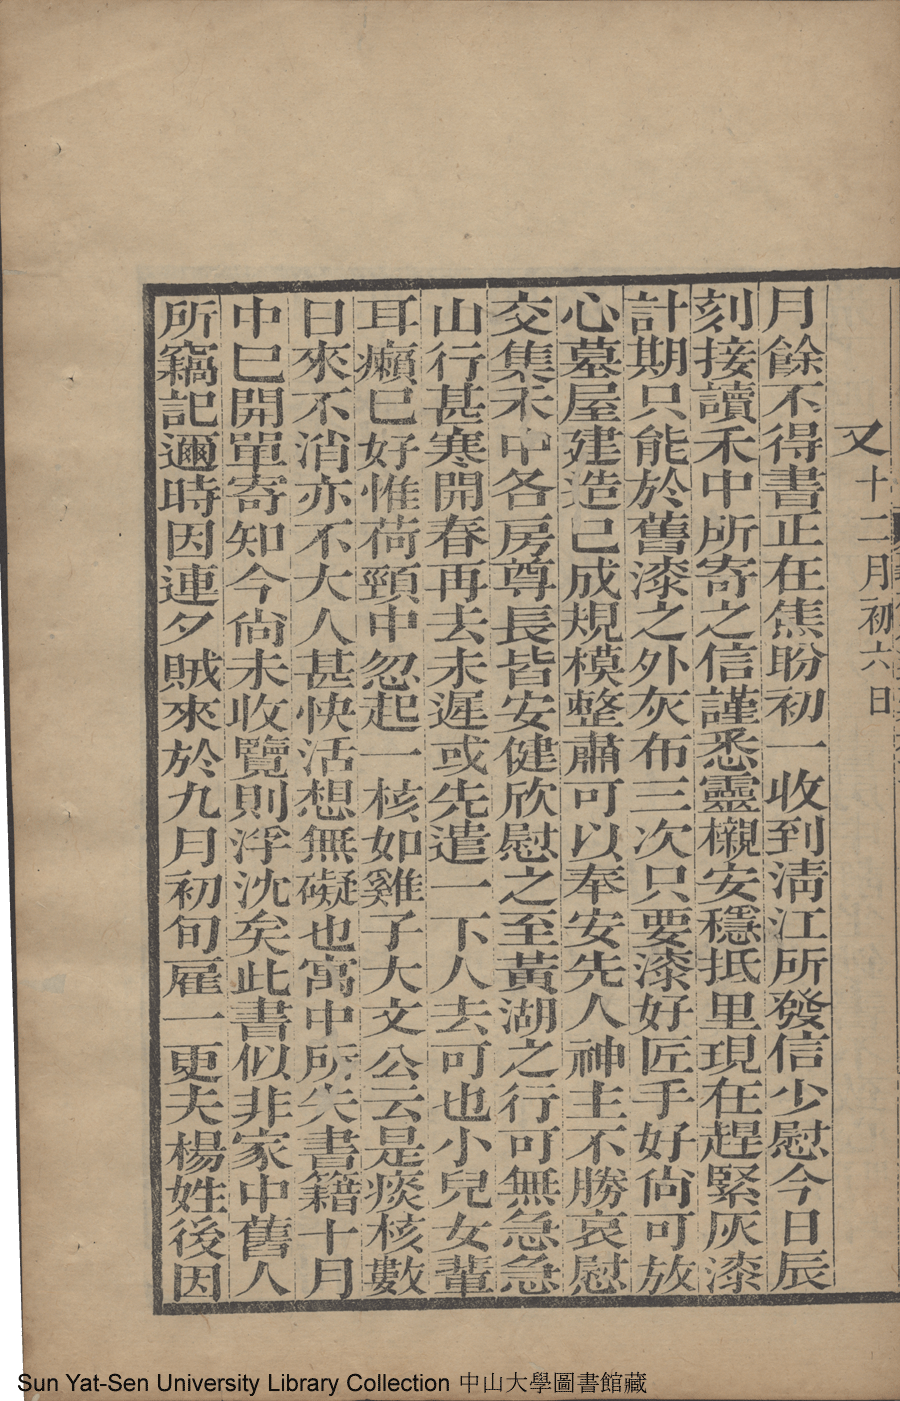 又十二月初六日
月餘不得書正在焦盼初一收到淸江所發信少慰今日辰
刻接讀禾中所寄之信謹悉靈櫬安穩抵里現在趕緊灰漆
計期只能於舊漆之外灰布三次只要漆好匠手好尙可放
心墓屋建造已成規模整肅可以奉安先人神主不勝哀慰
交集禾中各房尊長皆安健欣慰之至黃湖之行可無急急
山行甚寒開春再去未遲或先遣一下人去可也小兒女輩
耳癩已好惟荷頸中忽起一核如雞子大文公云是痰核數
日來不消亦不大人甚快活想無礙也寓中所失書籍十月
中已開單寄知今尙未收覽則浮沈矣此書似非家中舊人
所竊記邇時因連夕賊來於九月初旬雇一更夫楊姓後因
Sun Yat-Sen University Library Collection 中山大學圖書館藏